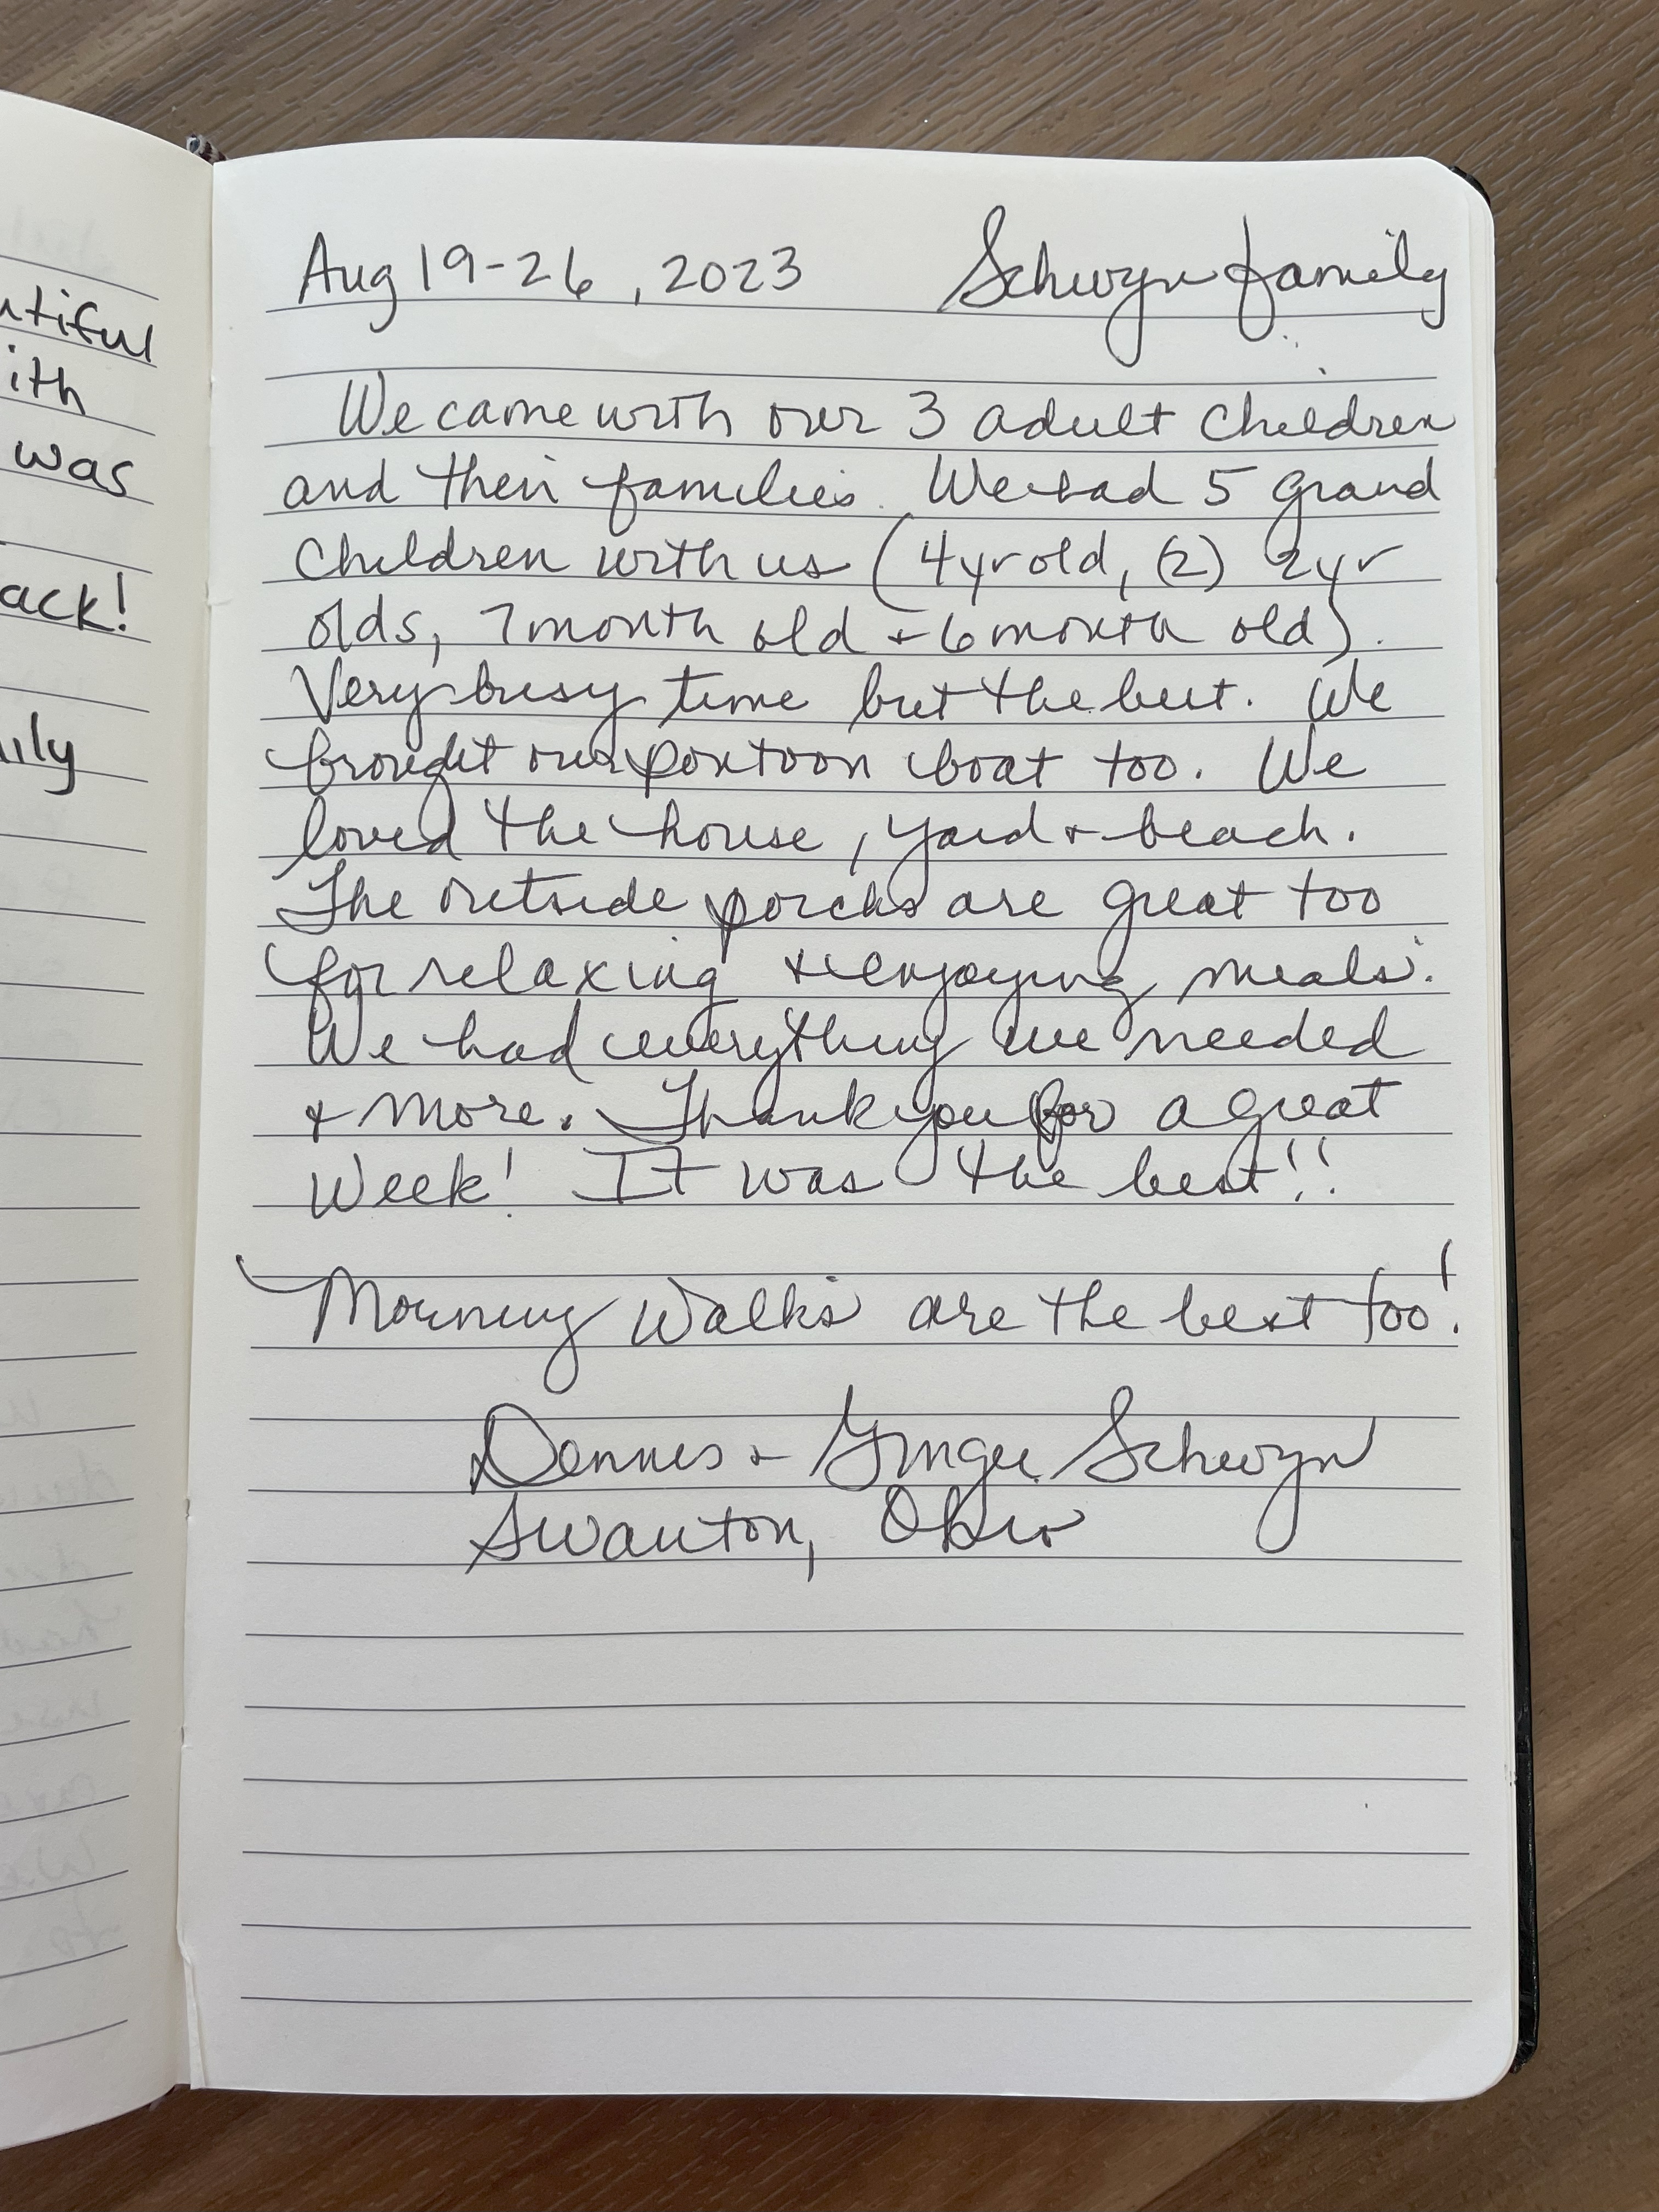 utiful
ith
was
ack!
ily
Aug 19-26, 2023 Schwyn family
We came with our 3 adult children
and their families. We had 5 grand
children with us (4yr old, (2) 2yr
olds, 7month old + 6month old).
Very busy time but the best. We
brought our pontoon boat too. We
loved the house, yard + beach.
The outside porchs are great too
for relaxing + enjoying meals.
We had everything we needed
+ more. Thank you for a great
Week! It was the best!!
Morning Walks are the best too!
Dennis + Ginger Schwyn
Swanton, Ohio